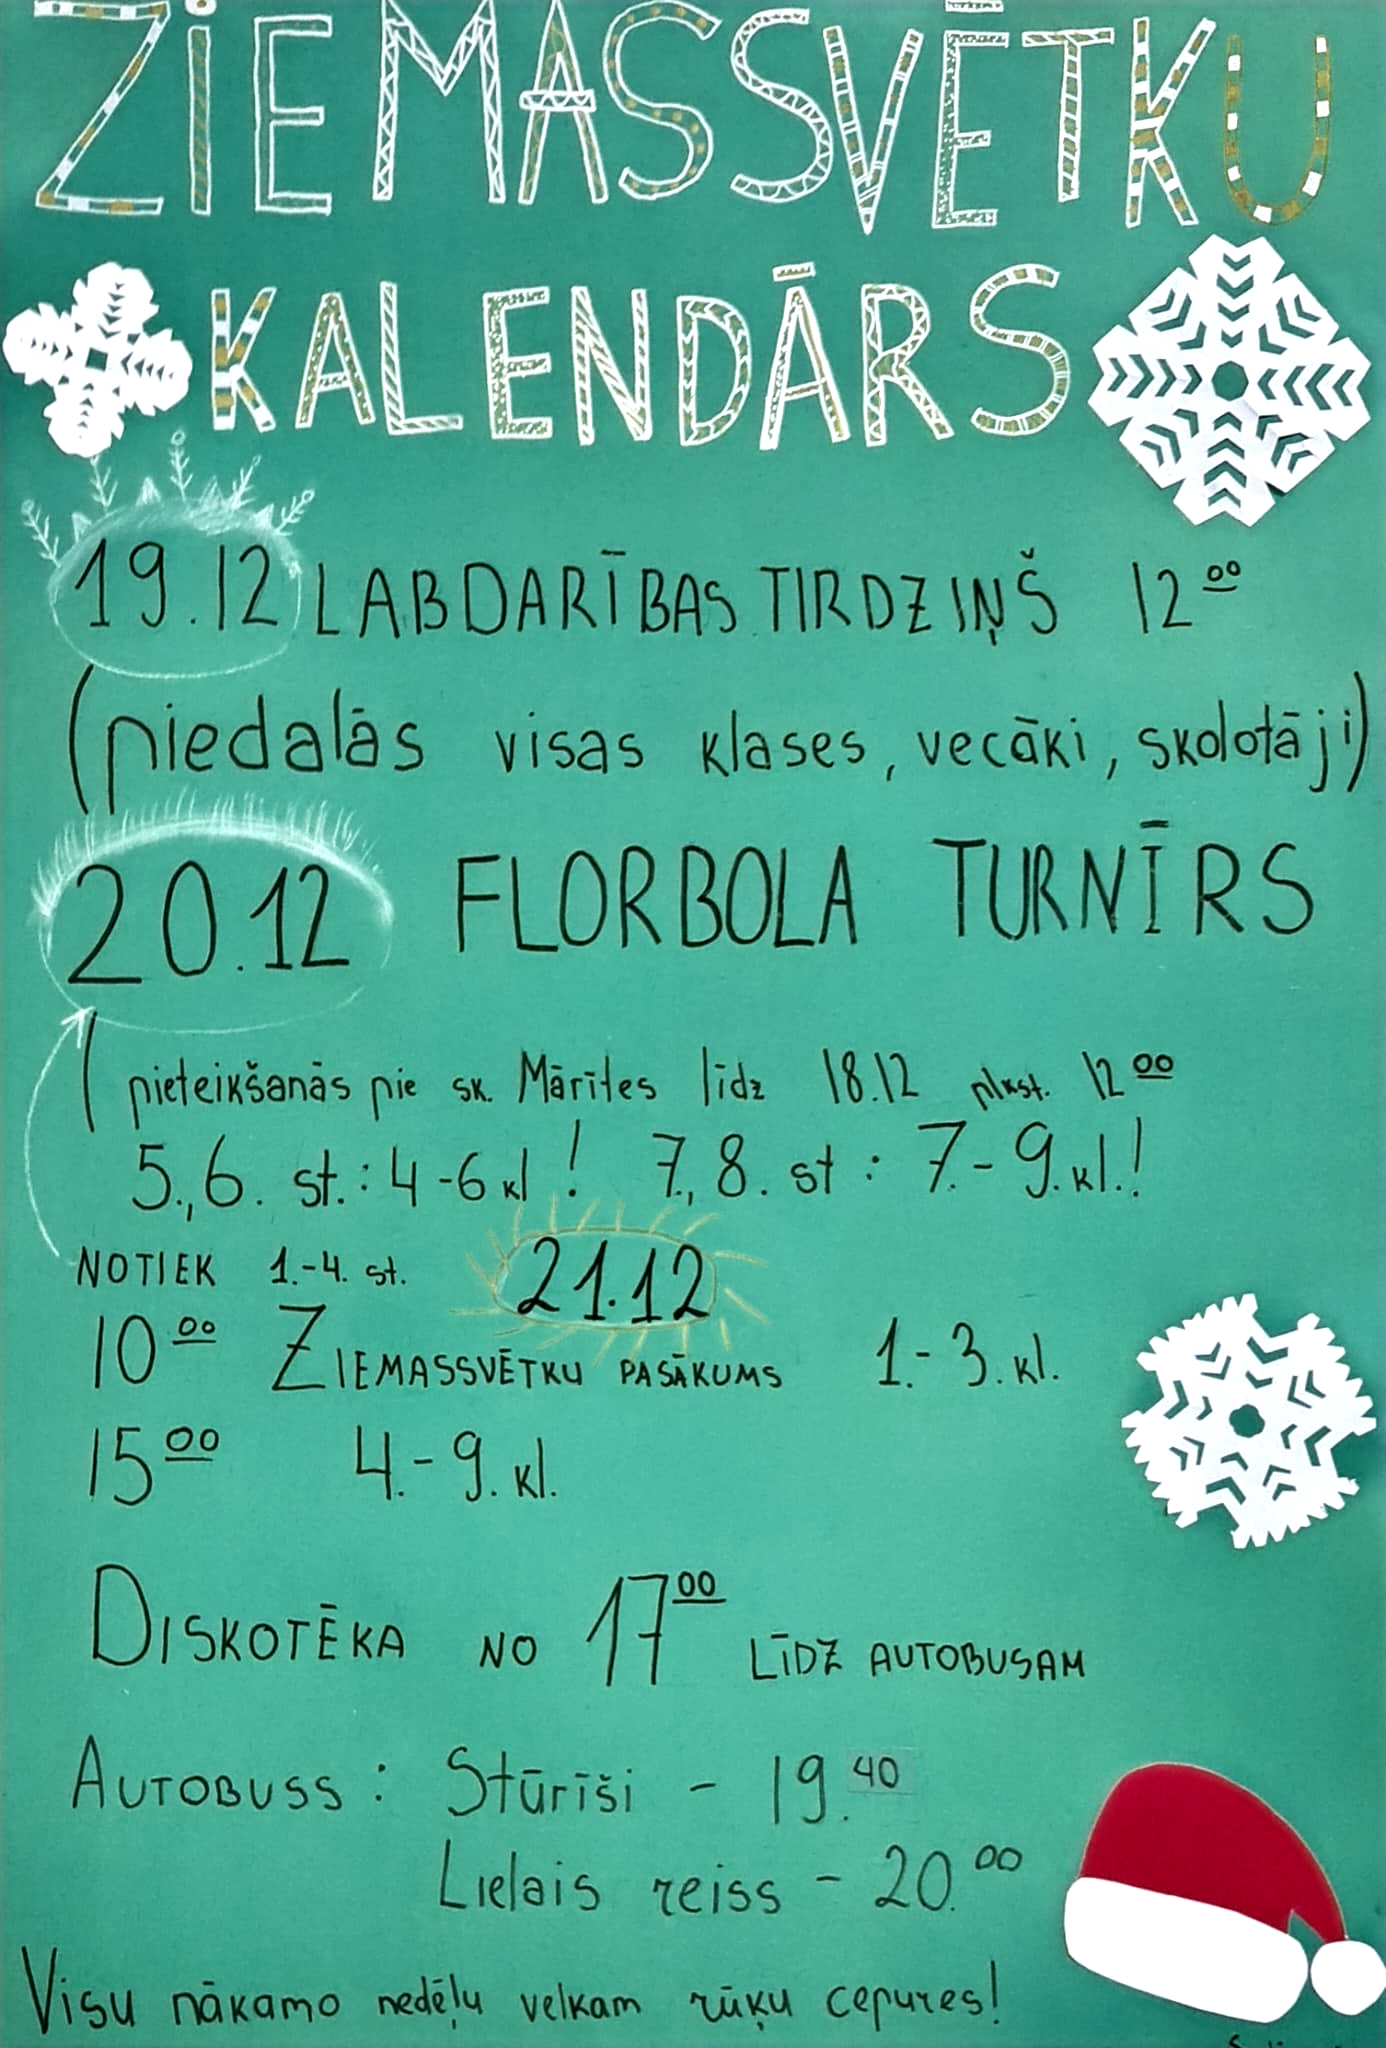 ZIEMASSVĒTKU
KALENDĀRS
19.12 LABDARĪBAS TIRDZIŅŠ 12⁰⁰
(piedalās visas klases, vecāki, skolotāji)
20.12 FLORBOLA TURNĪRS
(pieteikšanās pie sk. Mārītes līdz 18.12 plkst. 12⁰⁰
5.,6. st.: 4-6 kl! 7.,8. st: 7.-9. kl.!
NOTIEK 1.-4. st.
21.12
10⁰⁰ ZIEMASSVĒTKU PASĀKUMS 1.-3. kl.
15⁰⁰ 4.-9. kl.
DISKOTĒKA NO 17⁰⁰ LĪDZ AUTOBUSAM
AUTOBUSS: Stūrīši - 19.⁴⁰
Lielais reiss - 20.⁰⁰
Visu nākamo nedēļu velkam rūķu cepures!